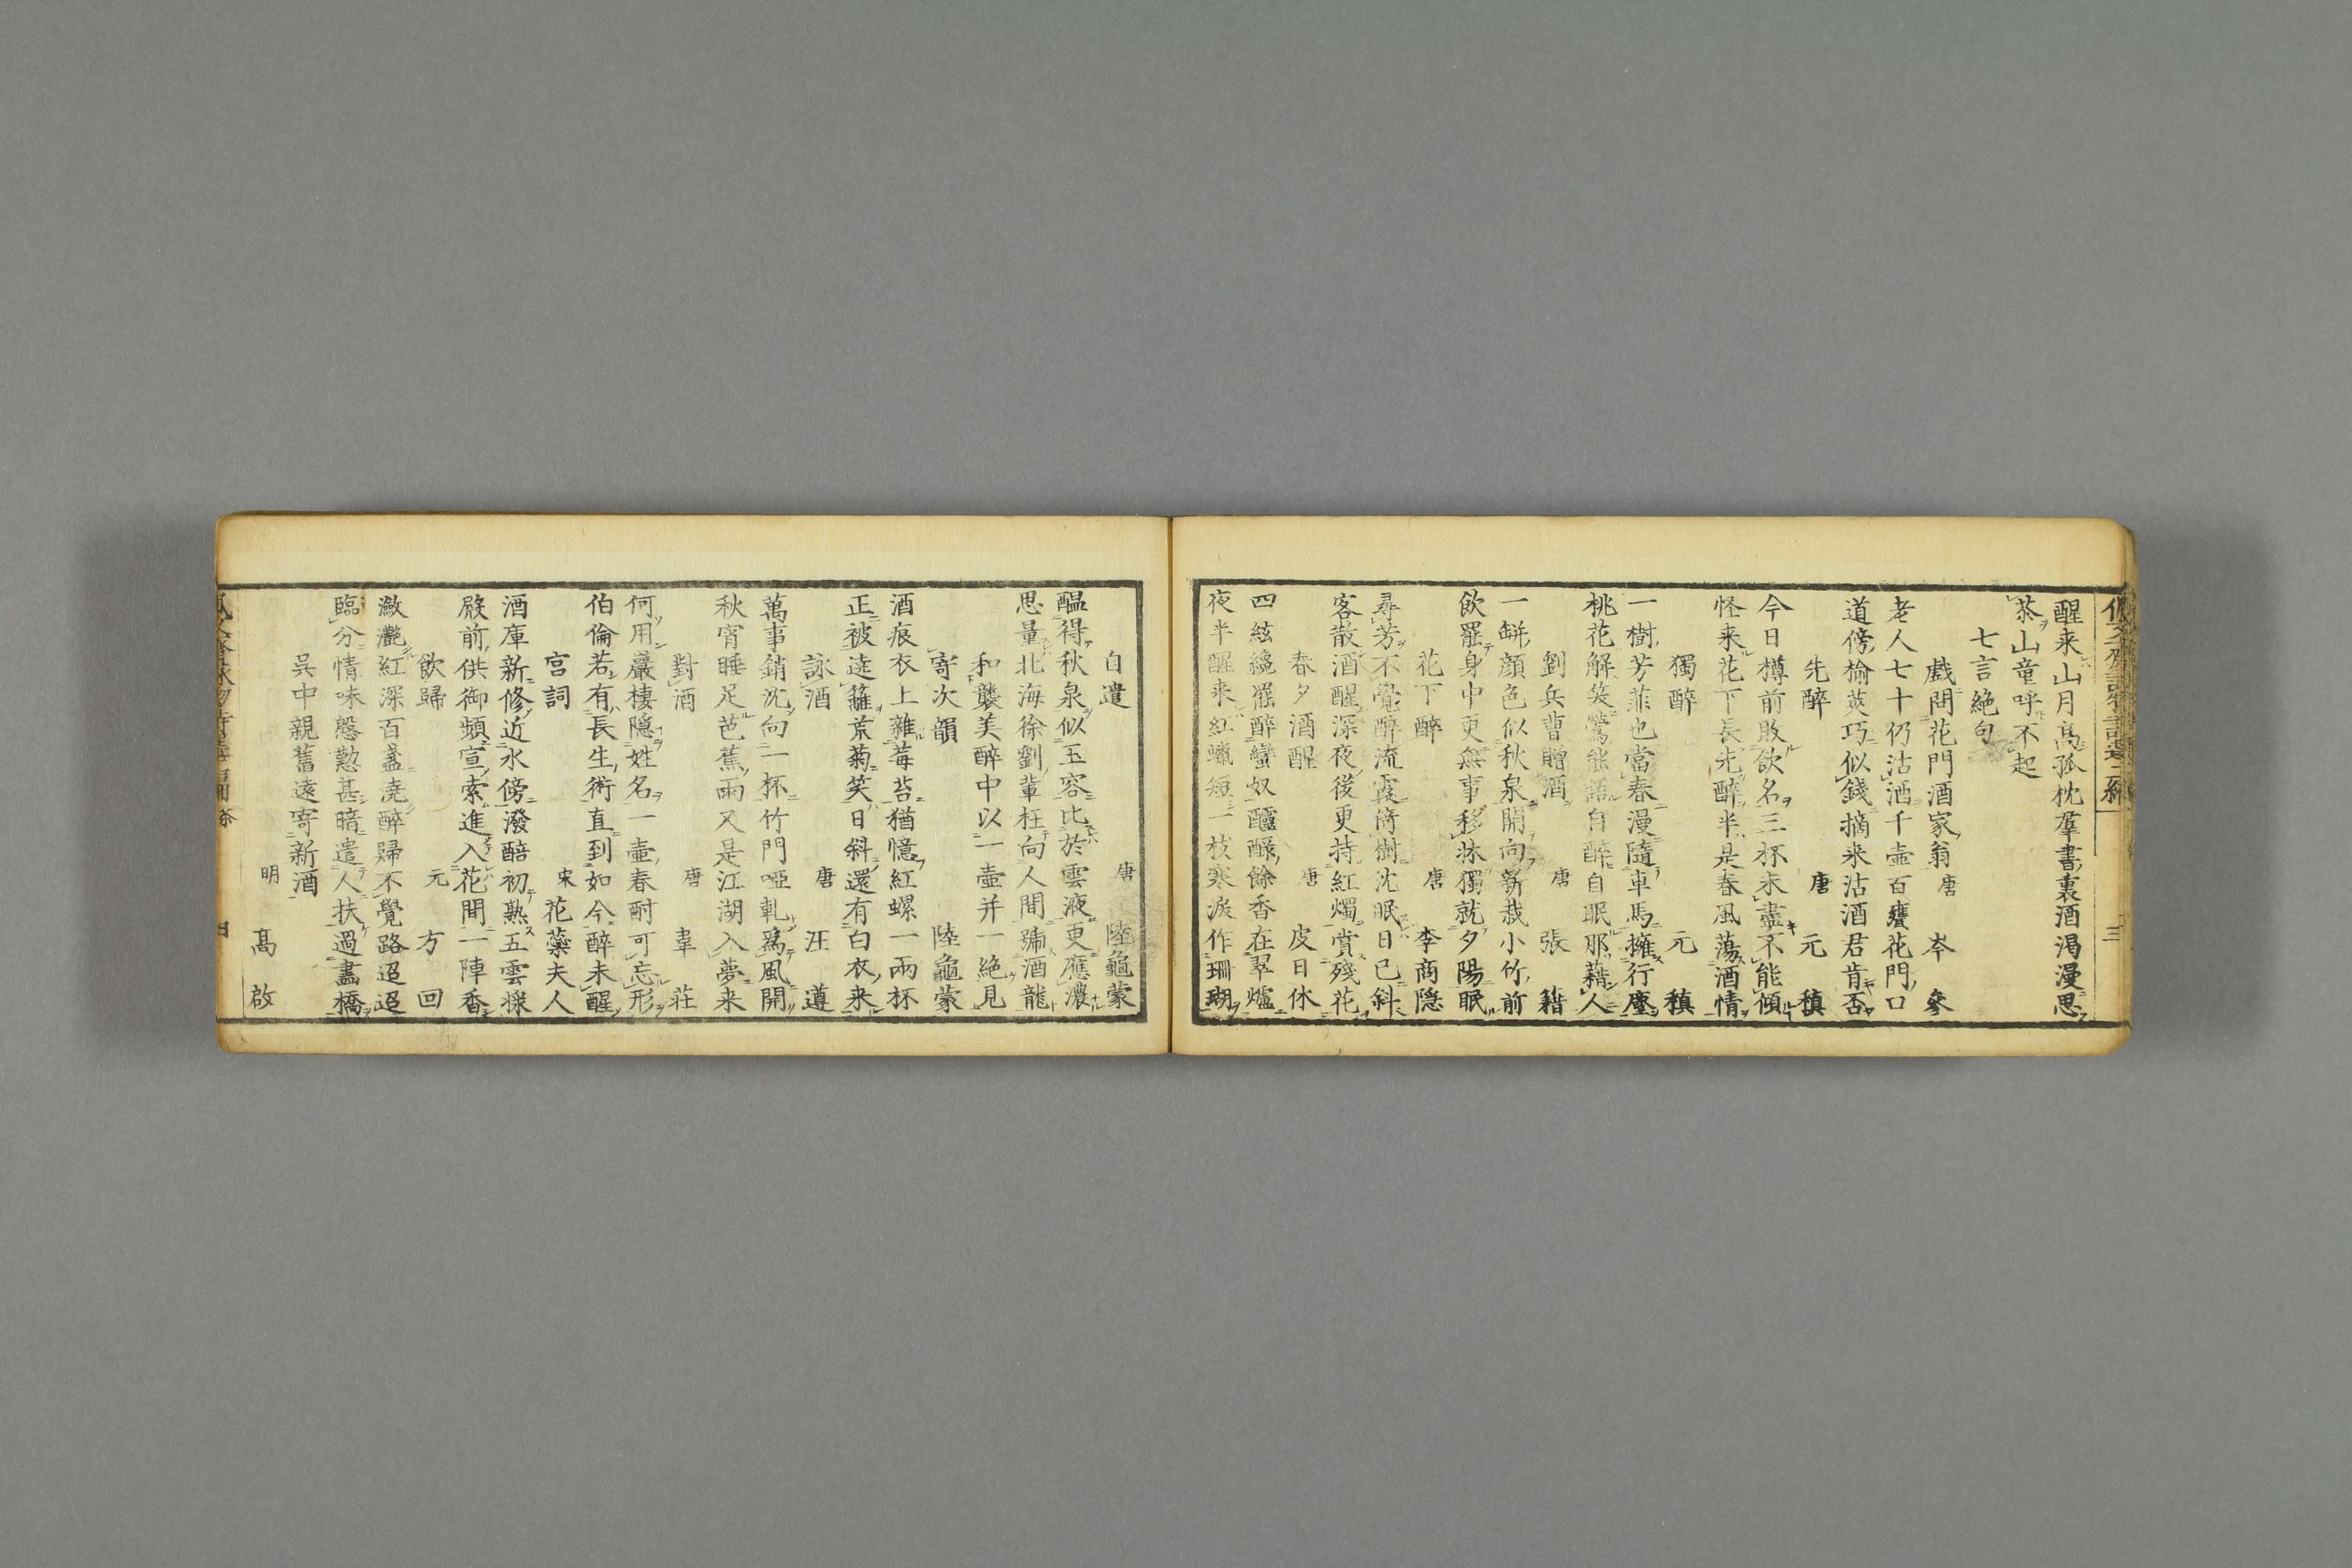 醒来山月高孤枕羣書裏酒渇漫思
茶山童呼不起
七言絶句
戲問花門酒家翁 唐 岑參
老人七十仍沽酒千壺百甕花門口
道傍榆莢巧似錢摘来沽酒君肯否
先醉 唐 元稹
今日樽前敗飲名三杯未盡不能傾
怪来花下長先醉半是春風蕩酒情
獨醉 元稹
一樹芳菲也當春漫隨車馬擁行塵
桃花解笑鶯能語自醉自眠那藉人
劉兵曹贈酒 唐 張籍
一缾顔色似秋泉開向新栽小竹前
飲罷身中更無事移牀獨就夕陽眠
花下醉 唐 李商隠
尋芳不覺醉流霞倚樹沈眠日已斜
客散酒醒深夜後更持紅燭賞殘花
春夕酒醒 唐 皮日休
四絃纔罷醉蠻奴醽醁餘香在翠爐
夜半醒来紅蠟短一枝寒淚作珊瑚
自遣 唐 陸龜蒙
醖得秋泉似玉容比於雲液更應濃
思量北海徐劉輩枉向人間號酒龍
和襲美醉中以一壺并一絶見
寄次韻 陸龜蒙
酒痕衣上雜莓苔猶憶紅螺一兩杯
正被遶籬荒菊笑日斜還有白衣来
詠酒 唐 汪遵
萬事銷沈向一杯竹門啞軋爲風開
秋宵睡足芭蕉雨又是江湖入夢来
對酒 唐 韋莊
何用巖棲隠姓名一壺春酎可忘形
伯倫若有長生術直到如今醉未醒
宮詞 宋 花蘂夫人
酒庫新修近水傍潑醅初熟五雲漿
殿前供御頻宣索進入花間一陣香
飲歸 元 方回
瀲灧紅深百盞澆醉歸不覺路迢迢
臨分情味慇懃甚暗遣人扶過畵橋
呉中親舊遠寄新酒
明 高啟